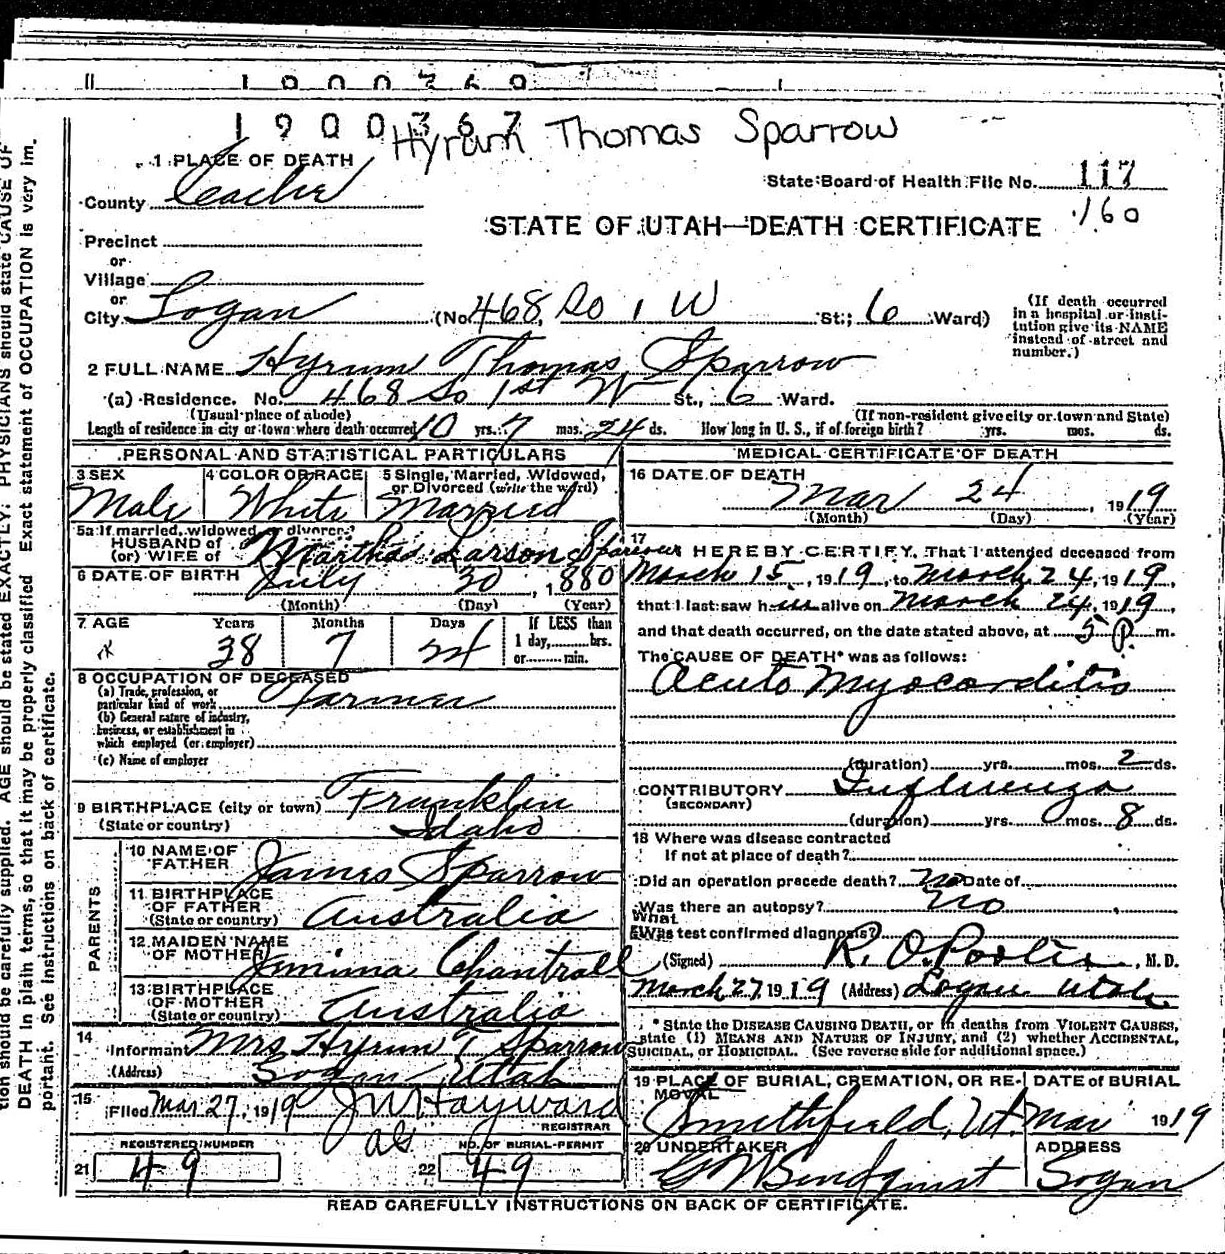 1900369
1900367
Hyrum Thomas Sparrow
1 PLACE OF DEATH
State Board of Health File No. 117
County Cache
160
STATE OF UTAH—DEATH CERTIFICATE
Precinct
or
Village
or
City Logan (No. 468 So 1 W St.; 6 Ward)
(If death occurred
in a hospital or insti-
tution give its NAME
instead of street and
number.)
2 FULL NAME Hyrum Thomas Sparrow
(a) Residence. No. 468 So 1st W St., 6 Ward.
(Usual place of abode) (If non-resident give city or town and State)
Length of residence in city or town where death occurred 10 yrs. 7 mos. 24 ds. How long in U. S., if of foreign birth? yrs. mos. ds.
PERSONAL AND STATISTICAL PARTICULARS
3 SEX 4 COLOR OR RACE 5 Single, Married, Widowed,
or Divorced (write the word)
Male White Married
5a If married, widowed or divorced
HUSBAND of
(or) WIFE of Martha Larson Sparrow
6 DATE OF BIRTH July 30, 1880
(Month) (Day) (Year)
7 AGE Years Months Days If LESS than
1 day, hrs.
or min.
38 7 24
8 OCCUPATION OF DECEASED
(a) Trade, profession, or
particular kind of work Farmer
(b) General nature of industry,
business, or establishment in
which employed (or employer)
(c) Name of employer
9 BIRTHPLACE (city or town) Franklin
(State or country) Idaho
PARENTS
10 NAME OF
FATHER James Sparrow
11 BIRTHPLACE
OF FATHER
(State or country) Australia
12 MAIDEN NAME
OF MOTHER Jemima Chantrell
13 BIRTHPLACE
OF MOTHER
(State or country) Australia
14
Informant Mrs Hyrum T Sparrow
(Address) Logan, Utah
15
Filed Mar 27, 1919 J W Hayward
REGISTRAR
REGISTERED NUMBER NO. OF BURIAL PERMIT
21 49 22 49
MEDICAL CERTIFICATE OF DEATH
16 DATE OF DEATH
Mar 24, 1919
(Month) (Day) (Year)
17
I HEREBY CERTIFY, That I attended deceased from
March 15, 1919, to March 24, 1919,
that I last saw him alive on March 24, 1919,
and that death occurred, on the date stated above, at 5 P. m.
The CAUSE OF DEATH* was as follows:
Acute Myocarditis
(duration) yrs. mos. 2 ds.
CONTRIBUTORY Influenza
(SECONDARY)
(duration) yrs. mos. 8 ds.
18 Where was disease contracted
If not at place of death?
Did an operation precede death? No Date of
Was there an autopsy? No
What
Was test confirmed diagnosis?
(Signed) R. O. Porter, M. D.
March 27, 1919 (Address) Logan Utah
* State the DISEASE CAUSING DEATH, or in deaths from VIOLENT CAUSES,
state (1) MEANS AND NATURE OF INJURY, and (2) whether ACCIDENTAL,
SUICIDAL, or HOMICIDAL. (See reverse side for additional space.)
19 PLACE OF BURIAL, CREMATION, OR RE-
MOVAL DATE of BURIAL
Smithfield, Ut. Mar 1919
20 UNDERTAKER ADDRESS
G W Lindquist Logan
READ CAREFULLY INSTRUCTIONS ON BACK OF CERTIFICATE.
tion should be carefully supplied. AGE should be stated EXACTLY. PHYSICIANS should state CAUSE OF
DEATH in plain terms, so that it may be properly classified Exact statement of OCCUPATION is very im.
portant. See instructions on back of certificate.